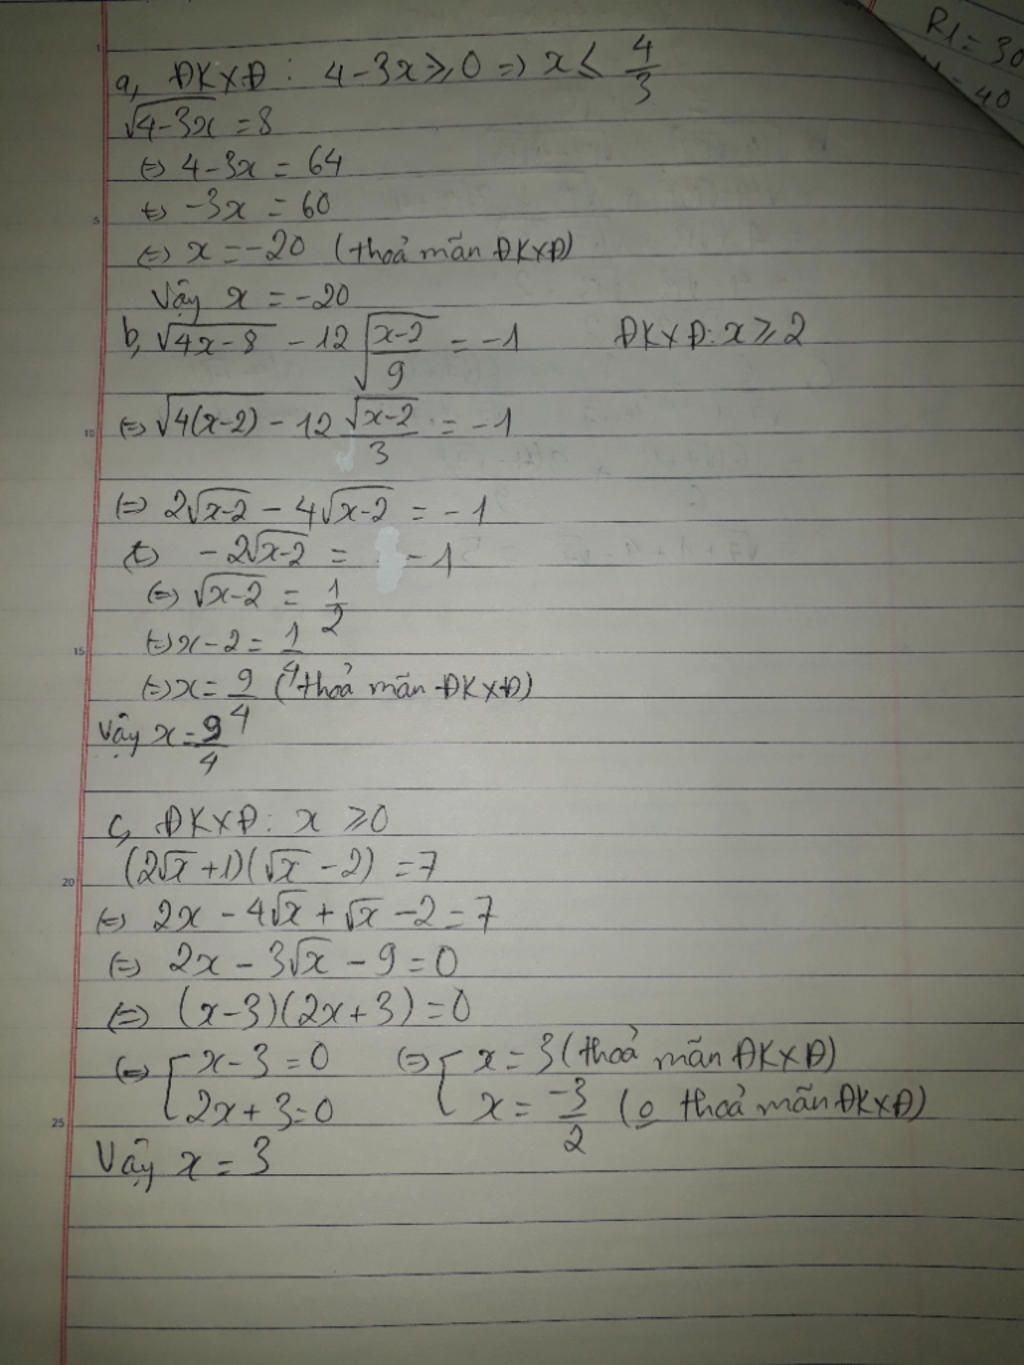 R1 = 30
= 40
a, ĐKXĐ: 4-3x ≥ 0 => x ≤ 4/3
√(4-3x) = 8
<=> 4-3x = 64
<=> -3x = 60
<=> x = -20 (thoả mãn ĐKXĐ)
Vậy x = -20
b, √(4x-8) - 12√((x-2)/9) = -1 ĐKXĐ: x ≥ 2
<=> √(4(x-2)) - 12 √(x-2)/3 = -1
<=> 2√(x-2) - 4√(x-2) = -1
<=> -2√(x-2) = -1
<=> √(x-2) = 1/2
<=> x-2 = 1/4
<=> x = 9/4 (thoả mãn ĐKXĐ)
Vậy x = 9/4
c, ĐKXĐ: x ≥ 0
(2√x + 1)(√x - 2) = 7
<=> 2x - 4√x + √x - 2 = 7
<=> 2x - 3√x - 9 = 0
<=> (x-3)(2x+3) = 0
<=> [ x-3 = 0 <=> [ x = 3 (thoả mãn ĐKXĐ)
2x+3 = 0 x = -3/2 (o thoả mãn ĐKXĐ)
Vậy x = 3